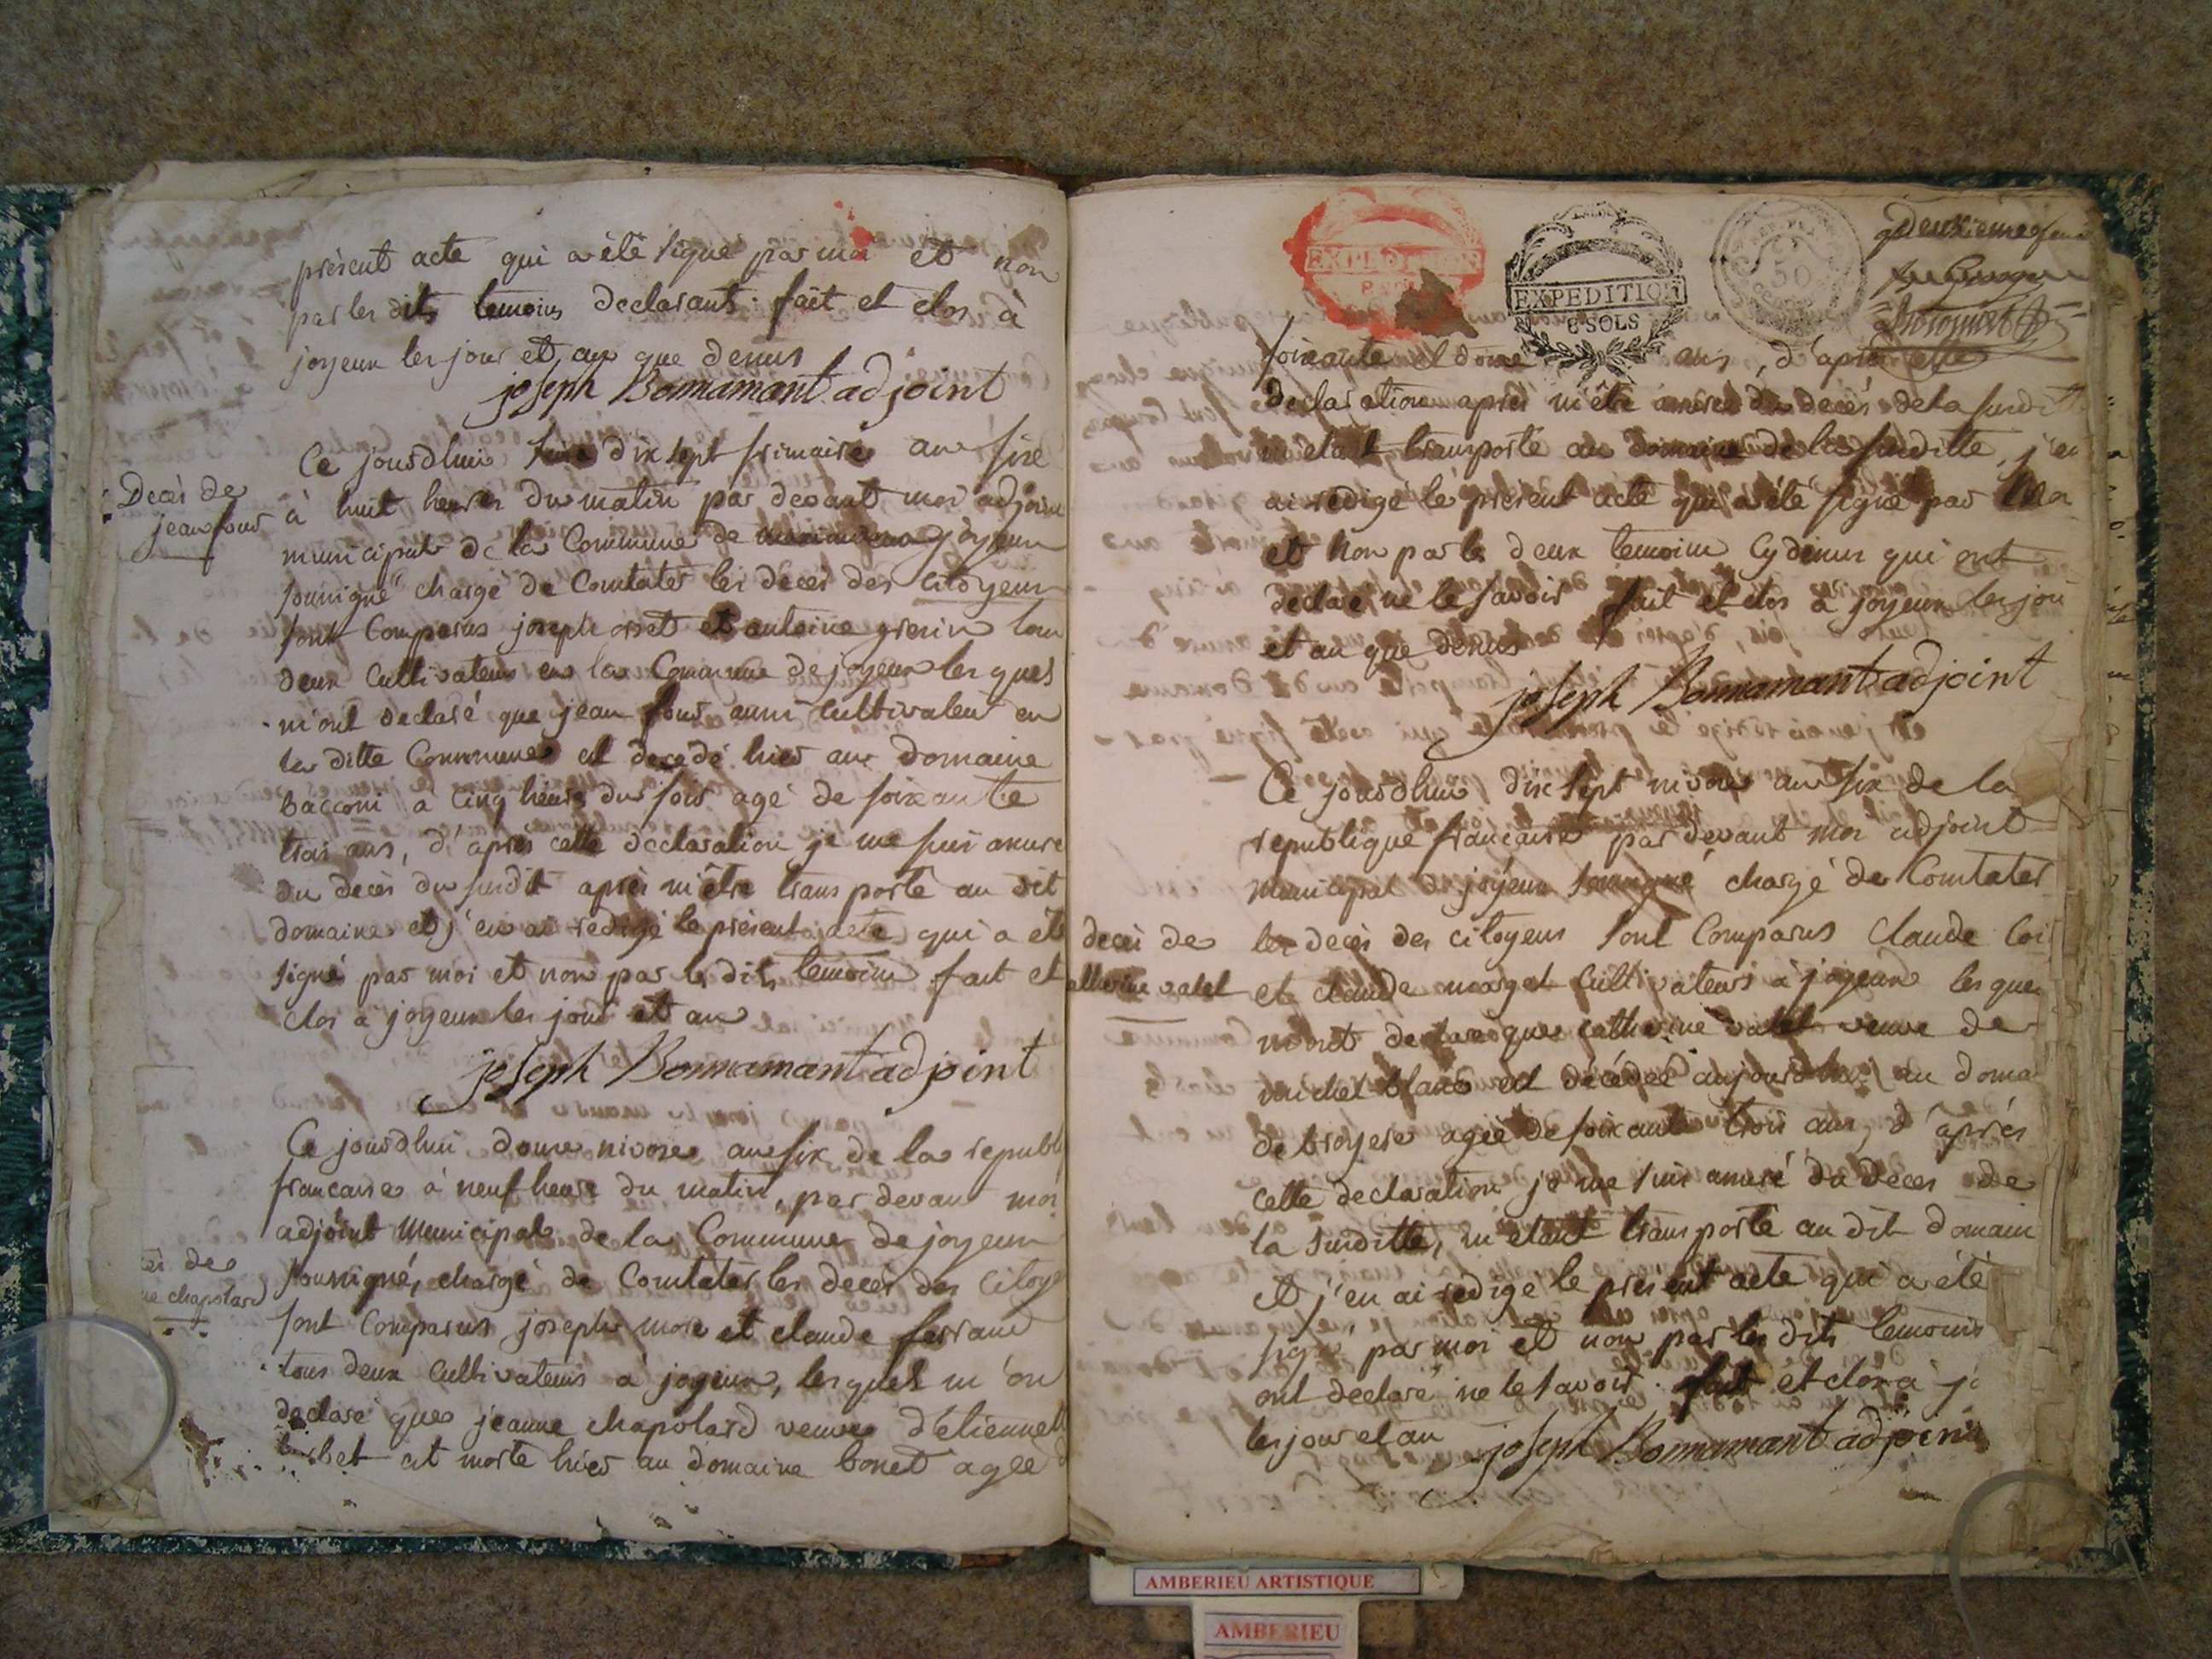 présent acte qui a été signé par moi et non
par les dits temoins declarants. fait et clos à
joyeux les jour et an que dessus
joseph Bonnamant adjoint
Ce jourdhui dix sept frimaire an sixe
Decès de
jean four
à huit heures du matin par devant moi adjoint
municipal de la Commune de joyeux
soussigné chargé de Constater les decès des citoyens
sont Comparus joseph orset et antoine grerin tous
deux Cultivateurs en la Commune de joyeux les quels
m'ont declaré que jean four aussi Cultivateur en
la ditte Commune est decedé hier au domaine
bacconi à Cinq heures du soir agé de soixante
trois ans, d'après cette declaration je me suis assuré
du decès du susdit après m'être transporté au dit
domaine et j'en ai redigé le présent acte qui a été
signé par moi et non par les dits temoins fait et
clos à joyeux les jour et an
joseph Bonnamant adjoint
Ce jourdhui douze nivose an six de la republ
francaise à neuf heure du matin, par devant moi
adjoint municipal de la Commune de joyeux
de
chapolard
soussigné, chargé de Constater les decès des citoye
sont Comparus joseph more et claude ferrand
tous deux Cultivateurs à joyeux, lesquels m'on
declaré que jeanne chapolard veuve d'étienne
est morte hier au domaine bonet agée
deuxieme
EXPEDITION
EXPEDITION
8 SOLS
50
soixante et douze ans, d'après cette
declaration après m'être assuré du decès de la susditte
m'etant transporté au domaine de la susditte, j'en
ai redigé le présent acte qui a été signé par moi
et non par les deux temoins cy dessus qui ont
declaré ne le savoir fait et clos à joyeux les jour
et an que dessus
joseph Bonnamant adjoint
Ce jourdhui dix sept nivose an six de la
republique francaise par devant moi adjoint
municipal à joyeux soussigné chargé de Constater
decès de
catherine vatel
les decès des citoyens sont Comparus Claude
et claude morget Cultivateurs à joyeux les que
m'ont declaré que catherine vatel veuve de
michel blanc est décédée aujourdhui au doma
de broyere agée de soixante trois ans, d'après
cette declaration je me suis assuré du decès de
la susditte, m'etant transporté au dit domain
et j'en ai redigé le présent acte qui a été
signé par moi et non par les dits temoins
ont declaré ne le savoir. fait et clos à jo
les jour et an
joseph Bonnamant adjoint
AMBERIEU ARTISTIQUE
AMBERIEU